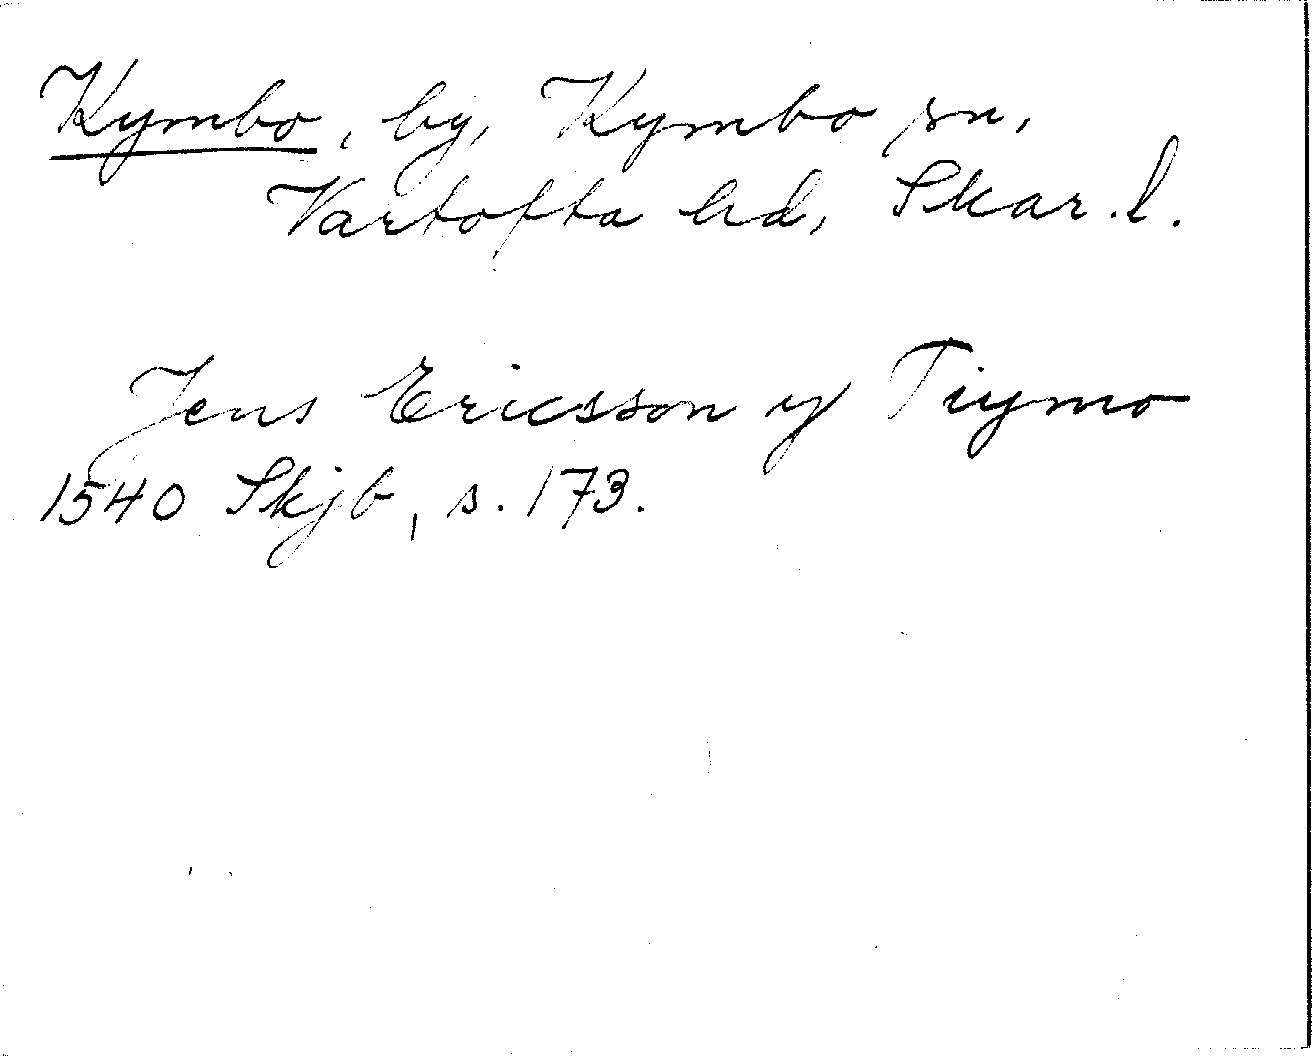 Kymbo, by, Kymbo sn,
Vartofta hd, Skar. l.
Jens Ericsson y Tiymo
1540 Skjb, s. 173.